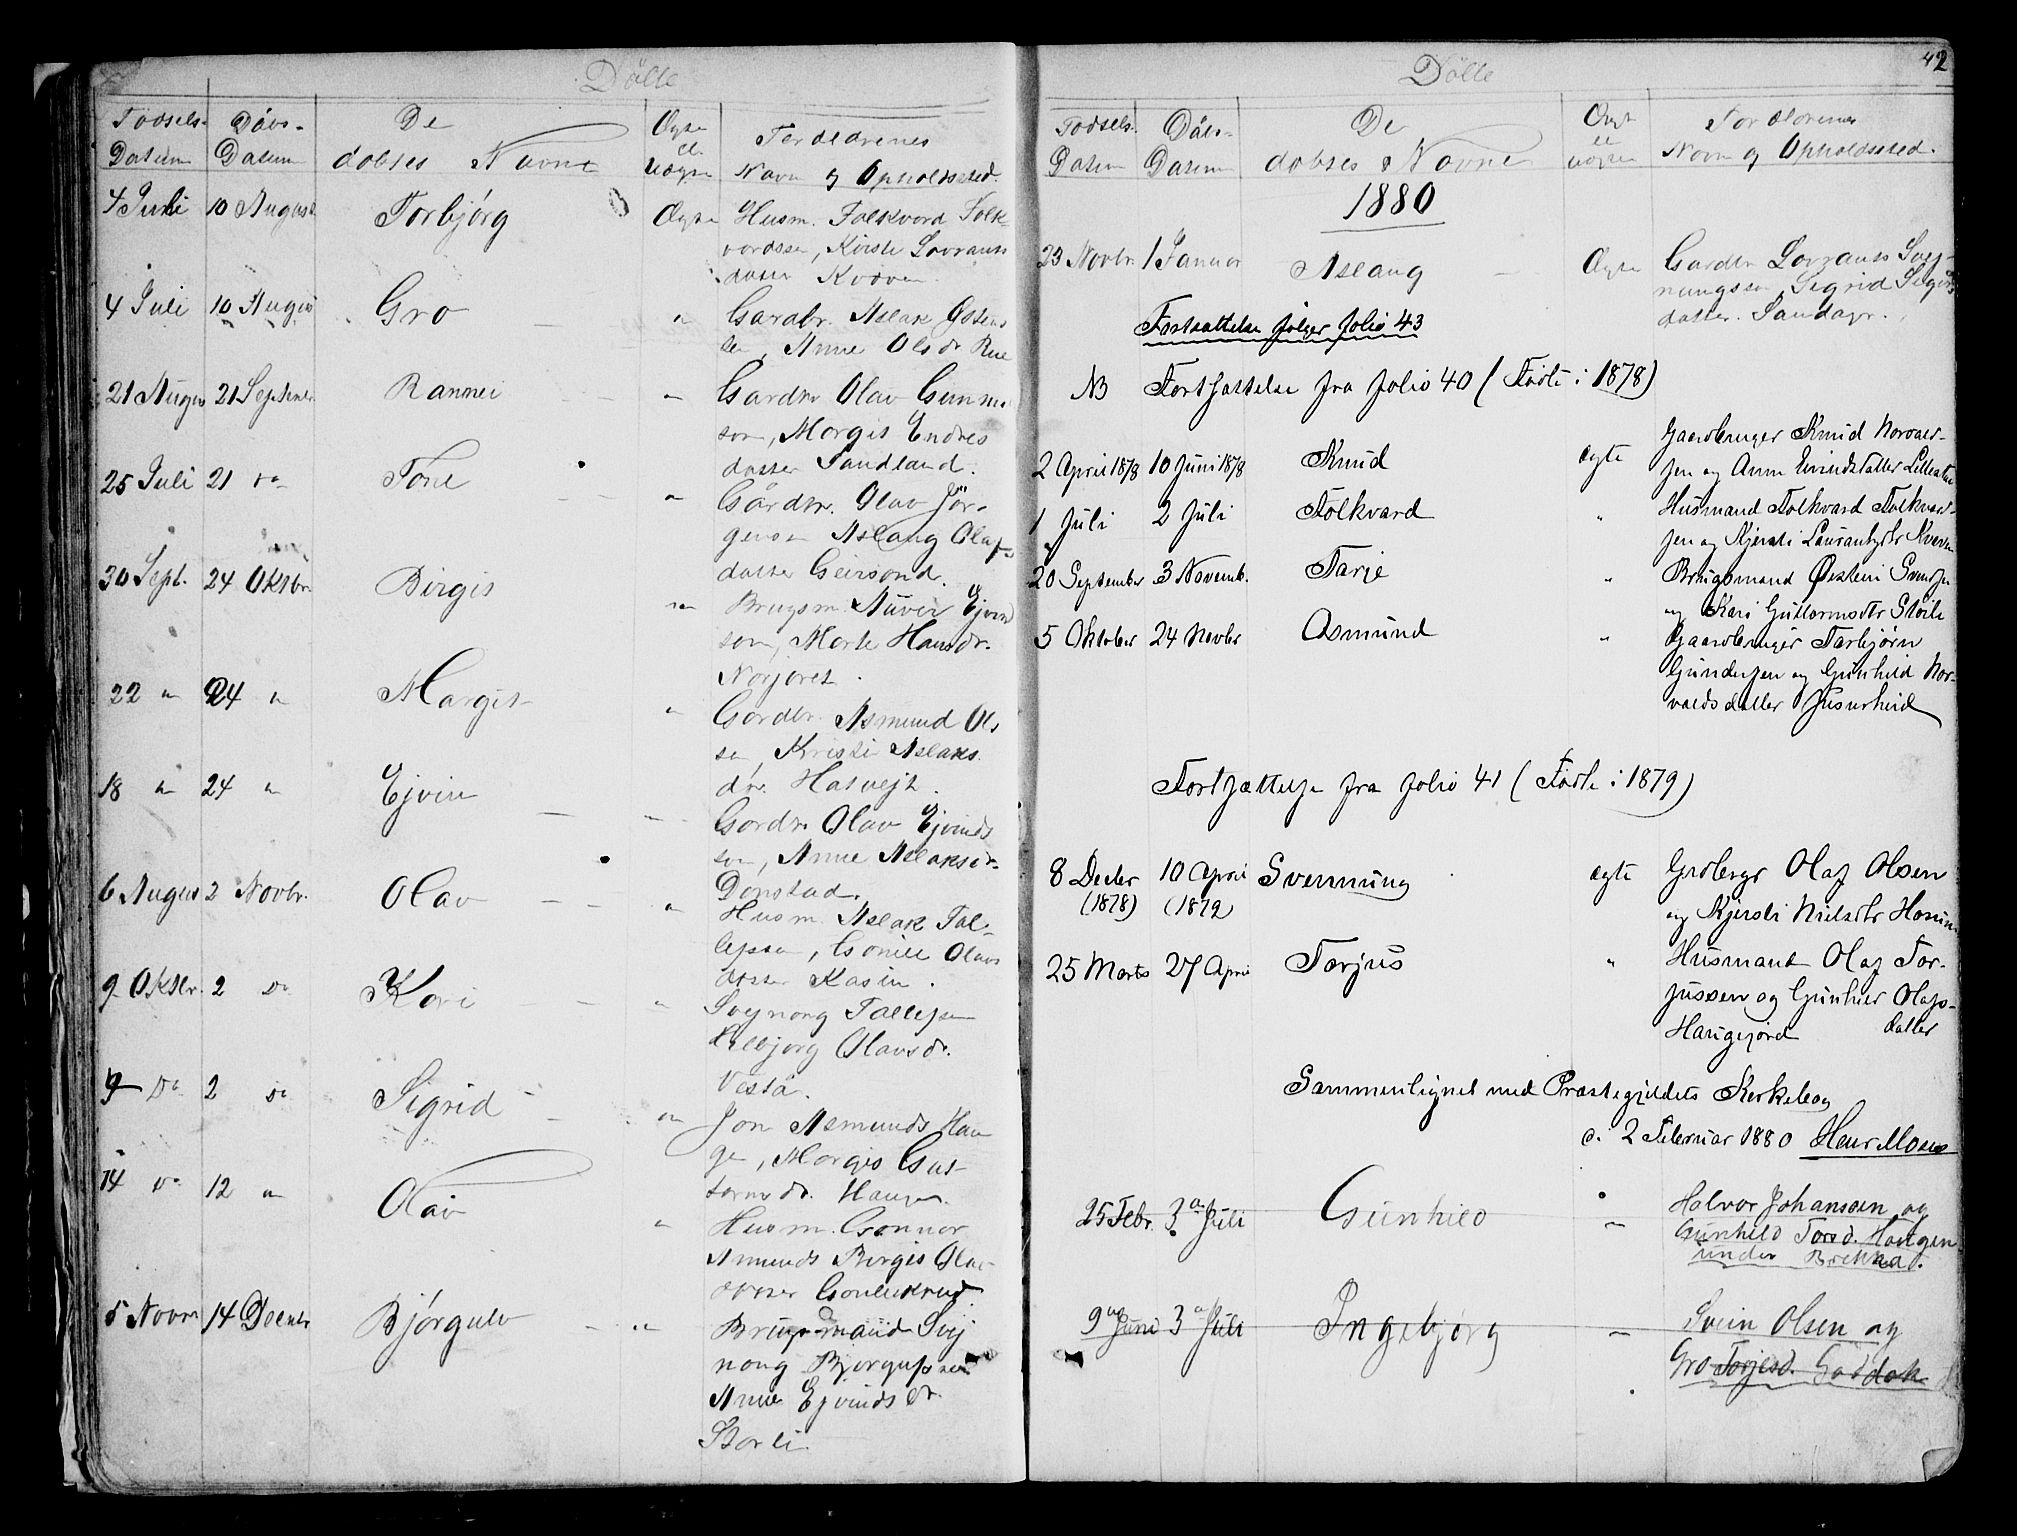 Døbte
Fødsels-
Datum
Dåbs-
Datum
De
døbtes Navne
Ægte
el.
uægte
Forældrenes
Navn og Opholdssted.
4 Juli 10 August Torbjørg Ægte Husm. Folkvard Folk-
vardssen, Kirsti Lavrants
datter Kvæven
4 Juli 10 August Gro " Gardbr. Aslak Østens
sen, Anne Olsdr Rue
21 August 21 Septembr. Rannei " Gardbr Olav Gunnar
son, Morgit Endres
datter Sandland.
25 Juli 21 do Tone " Gårdbr. Olav Jör-
gensen Aslaug Olafs
datter Geirsond.
30 Sept. 24 Oktbr. Birgit " Brugsm. Ejvind
son, Marte Hansdr.
Norjoret.
22 " 24 " Margit " Gardbr. Asmund Ols
sen, Kristi Aslaks
dr. Hatvejt.
18 " 24 " Ejvin " Gardbr Olav Ejvinds
son, Anne Aslaksdr
Dønstad.
6 August 2 Novbr. Olav " Husm. Aslak Tal-
lefsen, Gonild Olavs
datter Kasin.
9 Oktbr. 2 do Kari " Svejnong Tallefsen
Olavsdr.
Vestå.
9 do 2 do Sigrid " Jon Asmunds Hau
ge, Morgit Gut-
tormsdr. Haugen.
14 do 12 " Olav " Husm. Gonnar
Amunds Birgit Olav-
dotter
5 Novbr 14 Decmbr Bjørgulv " Brugsmand Svej
nong Bjorgufsen
Anne Ejvindsdr.
Storli.
42
Døbte
Fødsels-
Datum
Dåbs-
Datum
De
døbtes Navne
Ægt
el
uægte
Forældrenes
Navn og Opholdssted.
1880
23 Novbr. 1 Januar Aslaug Ægte Gardbr Lavrants Svej-
nungssen, Sigrid Sigurds
datter.
Fortsættelse følger folio 43
NB Fortsættelse fra folio 40 (Fødte i 1878)
2 April 1878 10 Juni 1878 Knud ægte Gaardbruger Knud Norvaer-
sen og Anne Eivindsdatter
1 Juli 2 Juli Folkvard " Husmand Folkvard Folkvard-
sen og Kjersti Laurantsdtr Kvæven
20 September 3 Novemb. Tarje " Brugsmand Østein Svensen
og Kari Guttormsdtr Støile
5 Oktober 24 Novbr Asmund " Gaardbruger Tarbjørn
Gundersen og Gunhild Nor-
valdsdatter
Fortsættelse fra folio 41 (Fødte i 1879)
8 Decbr 10 April Svennung ægte Grdbrgr Olaf Olsen
(1878) (1879) og Kjersti Nielsdtr
25 Marts 27 April Tarjus " Husmand Olaf Tar-
jussen og Gunhild Olafs-
Haugejord datter
Sammenlignet med Præstegjeldets Kirkebog
d. 2 Februar 1880 Henr Moses
25 Febr. 3a Juli Gunhild " Halvor Johansen og
Gunhild Torsd. Haugen
under Brekka.
9a Juni 3a Juli Ingebjørg " Svein Olsen og
Gro Torjesd.